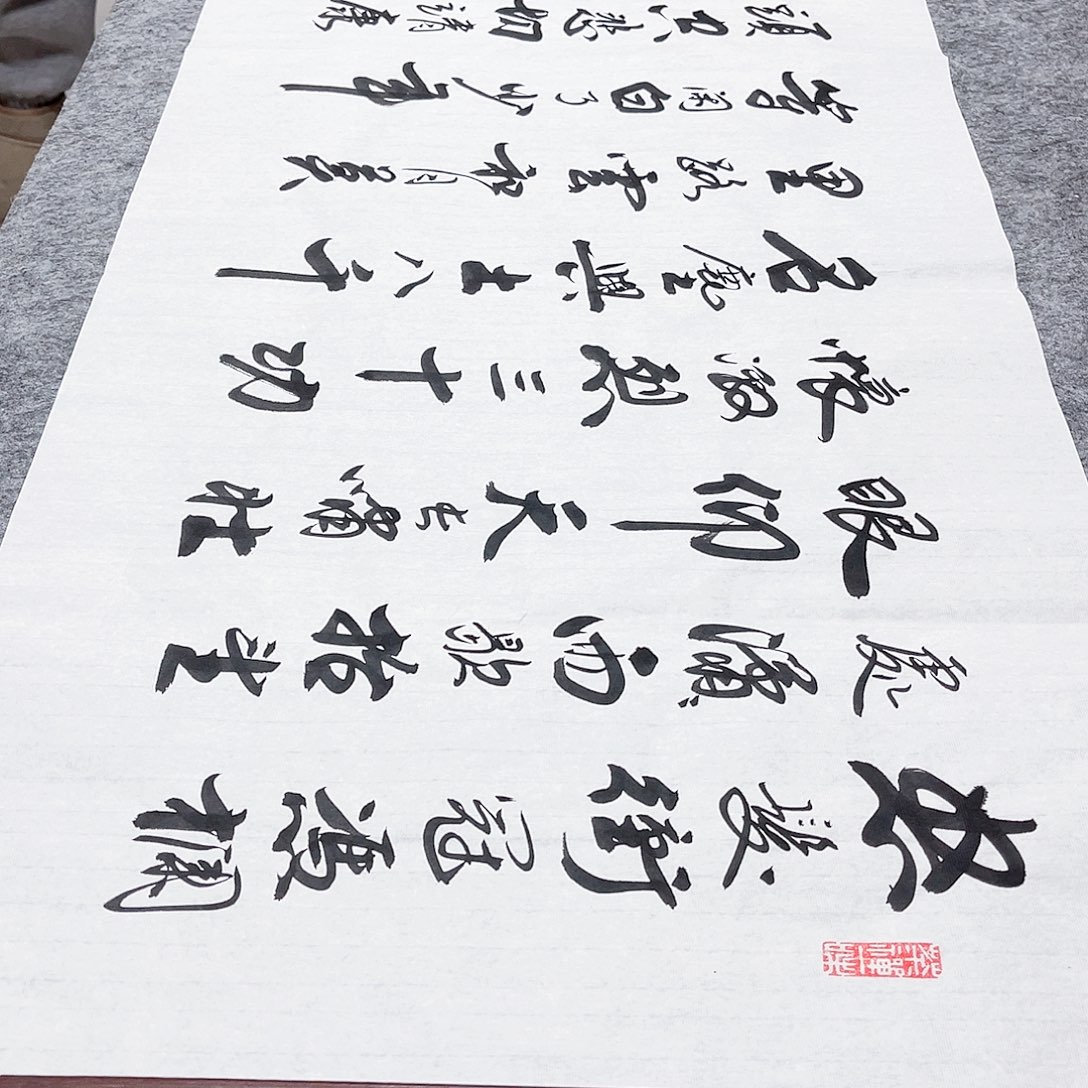 怒髮衝冠憑欄
處瀟々雨歇抬望
眼仰天長嘯壯
懷激烈三十功
名塵與土八千
里路雲和月莫
等閒白了少年
頭空悲切靖康